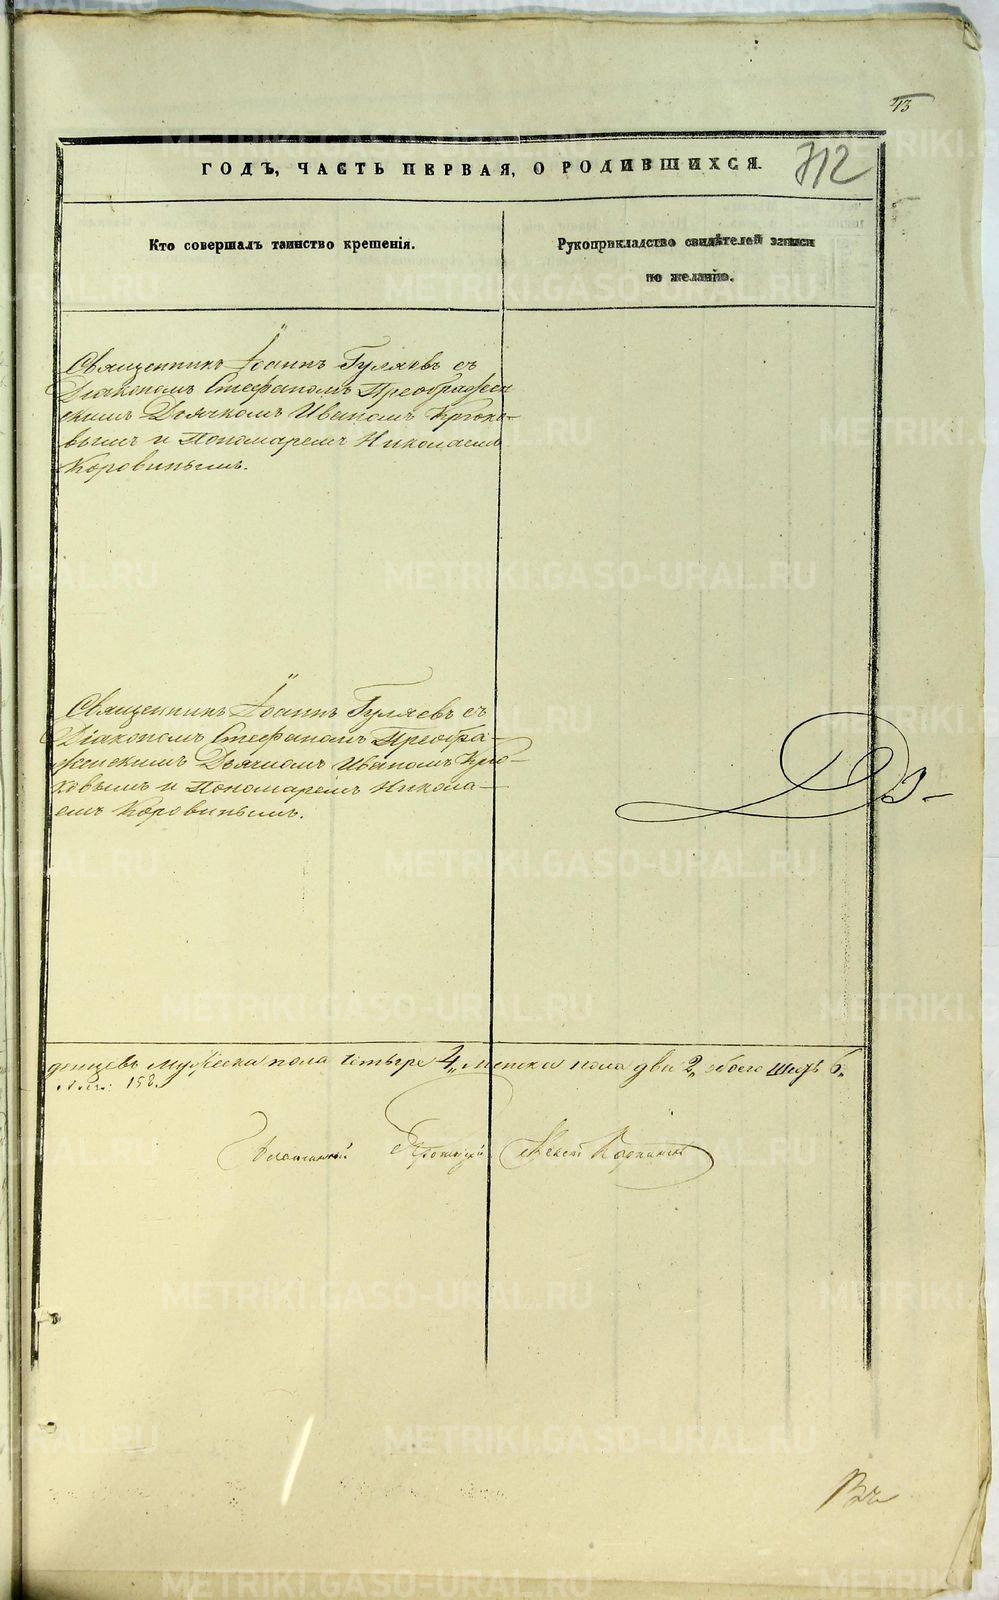 43
ГОДЪ, ЧАСТЬ ПЕРВАЯ, О РОДИВШИХСЯ.
712
Кто совершалъ таинство крещенія.
Рукоприкладство свидѣтелей записи
по желанію.
Священникъ Іоаннъ Гуляевъ съ
Діакономъ Стефаномъ Преображен
скимъ Дьячкомъ Иваномъ Крюко-
вымъ и Пономаремъ Николаемъ
Коровинымъ.
Священникъ Іоаннъ Гуляевъ съ
Діакономъ Стефаномъ Преобра-
женскимъ Дьячкомъ Иваномъ Крю-
ковымъ и Пономаремъ Никола-
емъ Коровинымъ.
денцевъ мужеска пола четыре 4, женска пола два 2, обоего шесть 6,
METRIKI.GASO-URAL.RU